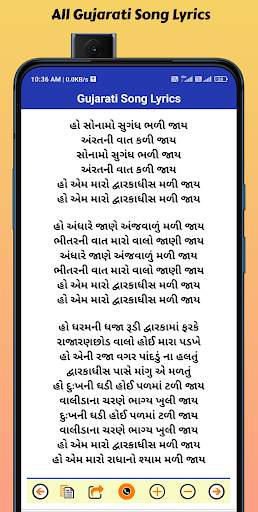 All Gujarati Song Lyrics
10:36 AM | 0.0KB/s
Gujarati Song Lyrics
હો સોનામો સુગંધ ભળી જાય
અંરતની વાત કળી જાય
સોનામો સુગંધ ભળી જાય
અંરતની વાત કળી જાય
હો એમ મારો દ્વારકાધીસ મળી જાય
હો એમ મારો દ્વારકાધીસ મળી જાય
હો અંધારે જાણે અંજવાળું મળી જાય
ભીતરની વાત મારો વાલો જાણી જાય
અંધારે જાણે અંજવાળું મળી જાય
ભીતરની વાત મારો વાલો જાણી જાય
હો એમ મારો દ્વારકાધીસ મળી જાય
હો એમ મારો દ્વારકાધીસ મળી જાય
હો ધરમની ધજા રૂડી દ્વારકામાં ફરકે
રાજારણછોડ વાલો હોઈ મારા પડખે
હો એની રજા વગર પાંદડું ના હલતું
દ્વારકાધીસ પાસે માંગુ એ મળતું
હો દુઃખની ઘડી હોઈ પળમાં ટળી જાય
વાલીડાના ચરણે ભાગ્ય ખુલી જાય
દુઃખની ઘડી હોઈ પળમાં ટળી જાય
વાલીડાના ચરણે ભાગ્ય ખુલી જાય
હો એમ મારો દ્વારકાધીસ મળી જાય
હો એમ મારો રાધાનો શ્યામ મળી જાય